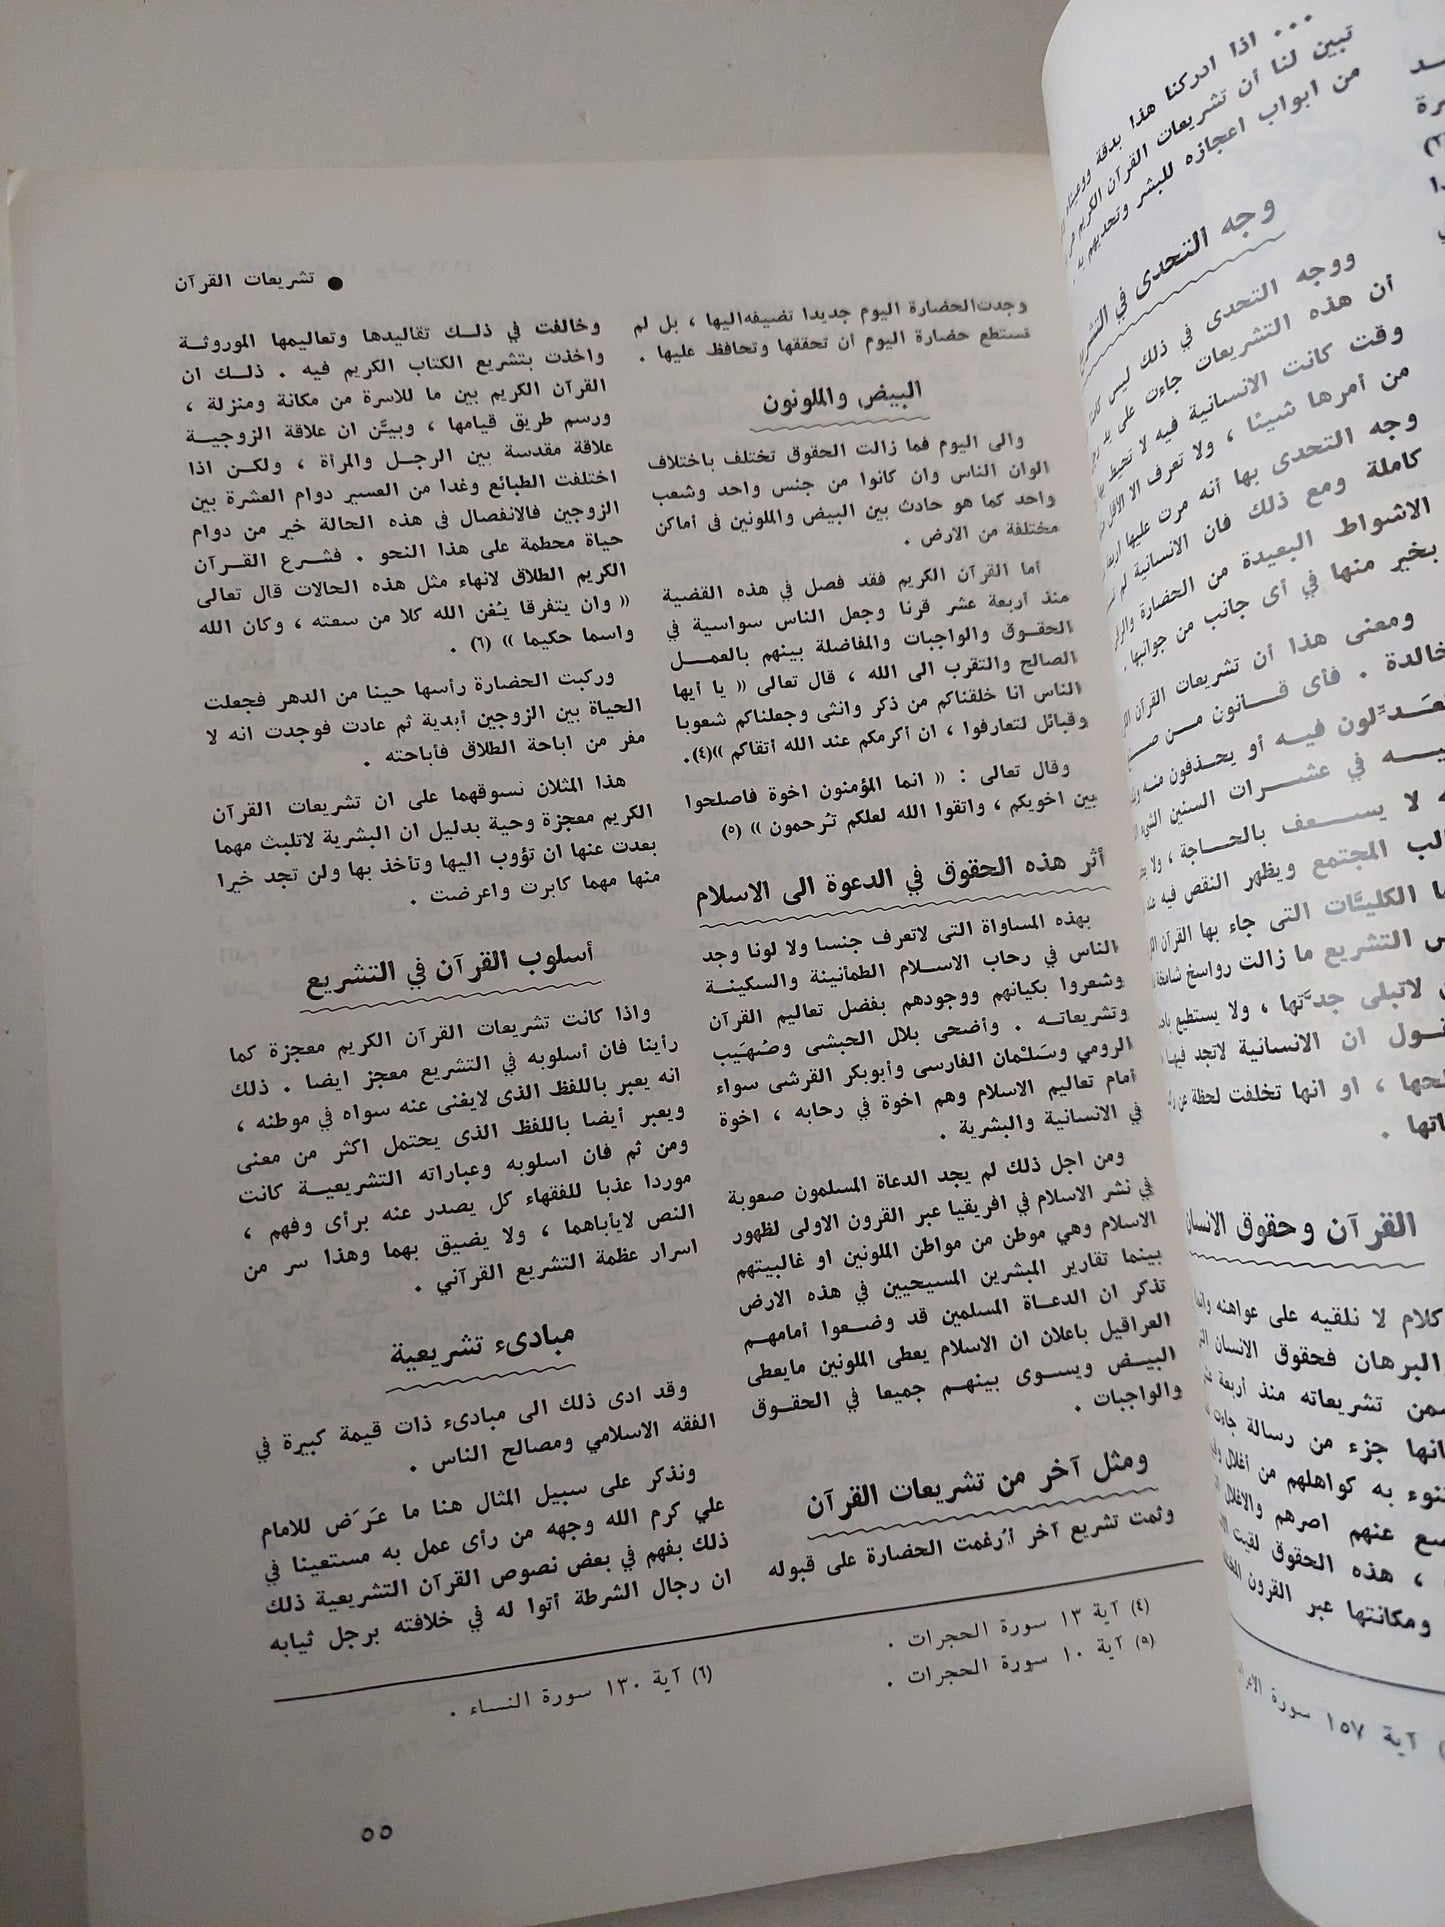 ● تشريعات القرآن
وجدت الحضارة اليوم جديدا تضيفه اليها ، بل لم
تستطع حضارة اليوم أن تحققها وتحافظ عليها .
البيض والملونون
والى اليوم فما زالت الحقوق تختلف باختلاف
الوان الناس وان كانوا من جنس واحد وشعب
واحد كما هو حادث بين البيض والملونين فى أماكن
مختلفة من الارض .
أما القرآن الكريم فقد فصل في هذه القضية
منذ أربعة عشر قرنا وجعل الناس سواسية في
الحقوق والواجبات والمفاضلة بينهم بالعمل
الصالح والتقرب الى الله ، قال تعالى « يا أيها
الناس انا خلقناكم من ذكر وانثى وجعلناكم شعوبا
وقبائل لتعارفوا ، ان أكرمكم عند الله أتقاكم »(٤).
وقال تعالى : « انما المؤمنون اخوة فاصلحوا
بين اخويكم ، واتقوا الله لعلكم تُرحمون » (٥)
أثر هذه الحقوق في الدعوة الى الاسلام
بهذه المساواة التى لاتعرف جنسا ولا لونا وجد
الناس في رحاب الاسلام الطمأنينة والسكينة
وشعروا بكيانهم ووجودهم بفضل تعاليم القرآن
وتشريعاته . وأضحى بلال الحبشى وصُهَيب
الرومي وسَلْمان الفارسى وأبوبكر القرشى سواء
أمام تعاليم الاسلام وهم اخوة في رحابه ، اخوة
في الانسانية والبشرية .
ومن اجل ذلك لم يجد الدعاة المسلمون صعوبة
في نشر الاسلام في افريقيا عبر القرون الاولى لظهور
الاسلام وهي موطن من مواطن الملونين او غالبيتهم
بينما تقارير المبشرين المسيحيين في هذه الارض
تذكر ان الدعاة المسلمين قد وضعوا أمامهم
العراقيل باعلان ان الاسلام يعطى الملونين مايعطى
البيض ويسوى بينهم جميعا في الحقوق
والواجبات .
ومثل آخر من تشريعات القرآن
وثمت تشريع آخر أُرغمت الحضارة على قبوله
(٤) آية ١٣ سورة الحجرات .
(٥) آية ١٠ سورة الحجرات .
وخالفت في ذلك تقاليدها وتعاليمها الموروثة
واخذت بتشريع الكتاب الكريم فيه . ذلك ان
القرآن الكريم بين ما للاسرة من مكانة ومنزلة ،
ورسم طريق قيامها ، وبيَّن ان علاقة الزوجية
علاقة مقدسة بين الرجل والمرأة ، ولكن اذا
اختلفت الطبائع وغدا من العسير دوام العشرة بين
الزوجين فالانفصال في هذه الحالة خير من دوام
حياة محطمة على هذا النحو . فشرع القرآن
الكريم الطلاق لانهاء مثل هذه الحالات قال تعالى
« وان يتفرقا يُغن الله كلا من سعته ، وكان الله
واسما حكيما » (٦) .
وركبت الحضارة رأسها حينا من الدهر فجعلت
الحياة بين الزوجين أبدية ثم عادت فوجدت انه لا
مفر من اباحة الطلاق فأباحته .
هذا المثلان نسوقهما على ان تشريعات القرآن
الكريم معجزة وحية بدليل ان البشرية لاتلبث مهما
بعدت عنها ان تؤوب اليها وتأخذ بها ولن تجد خيرا
منها مهما كابرت واعرضت .
أسلوب القرآن في التشريع
واذا كانت تشريعات القرآن الكريم معجزة كما
رأينا فان أسلوبه في التشريع معجز ايضا . ذلك
انه يعبر باللفظ الذى لايغنى عنه سواه في موطنه ،
ويعبر أيضا باللفظ الذى يحتمل اكثر من معنى
ومن ثم فان اسلوبه وعباراته التشريعية كانت
موردا عذبا للفقهاء كل يصدر عنه برأى وفهم ،
النص لايأباهما ، ولا يضيق بهما وهذا سر من
اسرار عظمة التشريع القرآني .
مبادىء تشريعية
وقد ادى ذلك الى مبادىء ذات قيمة كبيرة في
الفقه الاسلامي ومصالح الناس .
ونذكر على سبيل المثال هنا ما عَرَض للامام
علي كرم الله وجهه من رأى عمل به مستعينا في
ذلك بفهم في بعض نصوص القرآن التشريعية ذلك
ان رجال الشرطة أتوا له في خلافته برجل ثيابه
(٦) آية ١٣٠ سورة النساء .
٥٥
... اذا ادركنا هذا بدقة ووعيناه
تبين لنا أن تشريعات القرآن الكريم
من ابواب اعجازه للبشر وتحديهم به
وجه التحدى في التشريع
ووجه التحدى في ذلك ليس
أن هذه التشريعات جاءت على يد
وقت كانت الانسانية فيه لا تحيط
من أمرها شيئا ، ولا تعرف الا الاقل
وجه التحدى بها أنه مرت عليها
كاملة ومع ذلك فان الانسانية لم
الاشواط البعيدة من الحضارة
بخير منها في أى جانب من جوانبها .
ومعنى هذا أن تشريعات القرآن
خالدة . فأى قانون من
فيه أو يحذفون منه
في عشرات السنين
لا يسعف بالحاجة ،
المجتمع ويظهر النقص فيه
الكليَّات التى جاء بها القرآن
التشريع ما زالت رواسخ
لاتبلى جدَّتها ، ولا يستطيع
ان الانسانية لاتجد فيها
، او انها تخلفت لحظة عن
القرآن وحقوق الانسان
كلام لا نلقيه على عواهنه
البرهان فحقوق الانسان
تشريعاته منذ أربعة
جزء من رسالة جاءت
به كواهلهم من أغلال
عنهم اصرهم والاغلال
، هذه الحقوق لقيت
ومكانتها عبر القرون
آية ١٥٧ سورة